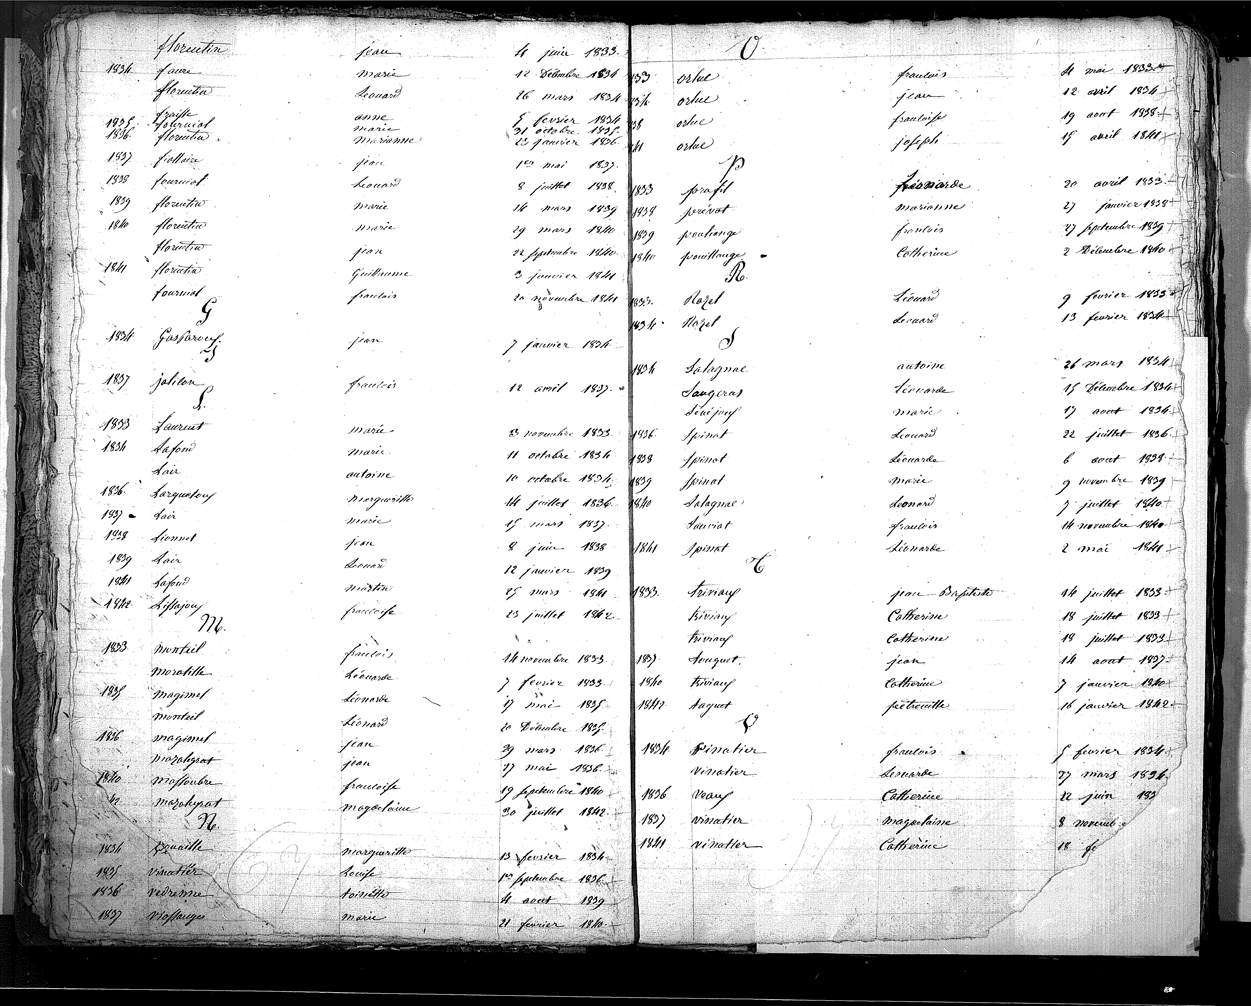 florentin jean 4 juin 1833
1834 faure marie 12 Décembre 1834
florentin Léonard 26 mars 1834
fraisse anne 5 fevrier 1834
1835 fourniol marie 31 octobre 1835
1836 florentin marianne 23 janvier 1836
1837 jean 1er mai 1837
1838 fourniol Léonard 8 juillet 1838
1839 florentin marie 14 mars 1839
1840 florentin marie 29 mars 1840
florentin jean 22 septembre 1840
1841 florentin Guillaume 3 janvier 1841
fourniol francois 20 novembre 1841
G
1834 jean 7 janvier 1834
J
1837 francois 12 avril 1837
L
1833 Laurent marie novembre 1833
1834 Lafond marie 11 octobre 1834
Lair antoine 10 octobre 1834
1836 margueritte 14 juillet 1836
1837 Lair marie 15 mars 1837
1838 Lionnet jean 8 juin 1838
1839 Lair Léonard 12 janvier 1839
1841 Lafond martin 25 mars 1841
1842 Lissajoux francoise 23 juillet 1842
M.
1833 monteil francois 14 novembre 1833
Léonarde 7 fevrier 1833
1835 magimel Léonarde 17 mai 1835
monteil Léonard 20 Décembre 1835
1836 magimel jean 29 mars 1836
mazaleyrat jean 27 mai 1836
1840 massoubre francoise 19 septembre 1840
mazaleyrat magdelaine 30 juillet 1842
N.
1834 margueritte 13 fevrier 1834
1835 vinatier Louise 1er septembre 1836
1836 vedrenne toinette 4 aout 1839
1837 marie 21 fevrier 1840
O.
33 ortue francois 4 mai 1833
34 ortue jean 12 avril 1834
38 ortue francoise 19 aout 1838
41 ortue joseph 15 avril 1841
P
1833 profit Léonarde 20 avril 1833
1838 prévot marianne 27 janvier 1838
1839 francois 27 septembre 1839
1840 Catherine 2 Décembre 1840
R
1833 Razel Léonard 9 fevrier 1833
1834 Razel Léonard 13 fevrier 1834
S
1834 Salagnac antoine 26 mars 1834
Saugeras Léonarde 15 Décembre 1834
marie 17 aout 1834
1836 Spinat Léonard 22 juillet 1836
1838 Spinat Léonarde 6 aout 1838
1839 Spinat marie 9 novembre 1839
1840 Salagnac Léonard 7 juillet 1840
Sauviat francois 14 novembre 1840
1841 Spinat Léonarde 2 mai 1841
T
1833 triviaux jean Baptiste 14 juillet 1833
triviaux Catherine 18 juillet 1833
triviaux Catherine 18 juillet 1833
1837 jean 14 aout 1837
1840 triviaux Catherine 7 janvier 1840
1842 taguet petronille 16 janvier 1842
V
1834 Vinatier francois 5 fevrier 1834
vinatier Léonarde 27 mars 1834
1836 veaux Catherine 22 juin 183
1837 vinatier magdelaine 8 novemb
1841 vinatier Catherine 18 fe